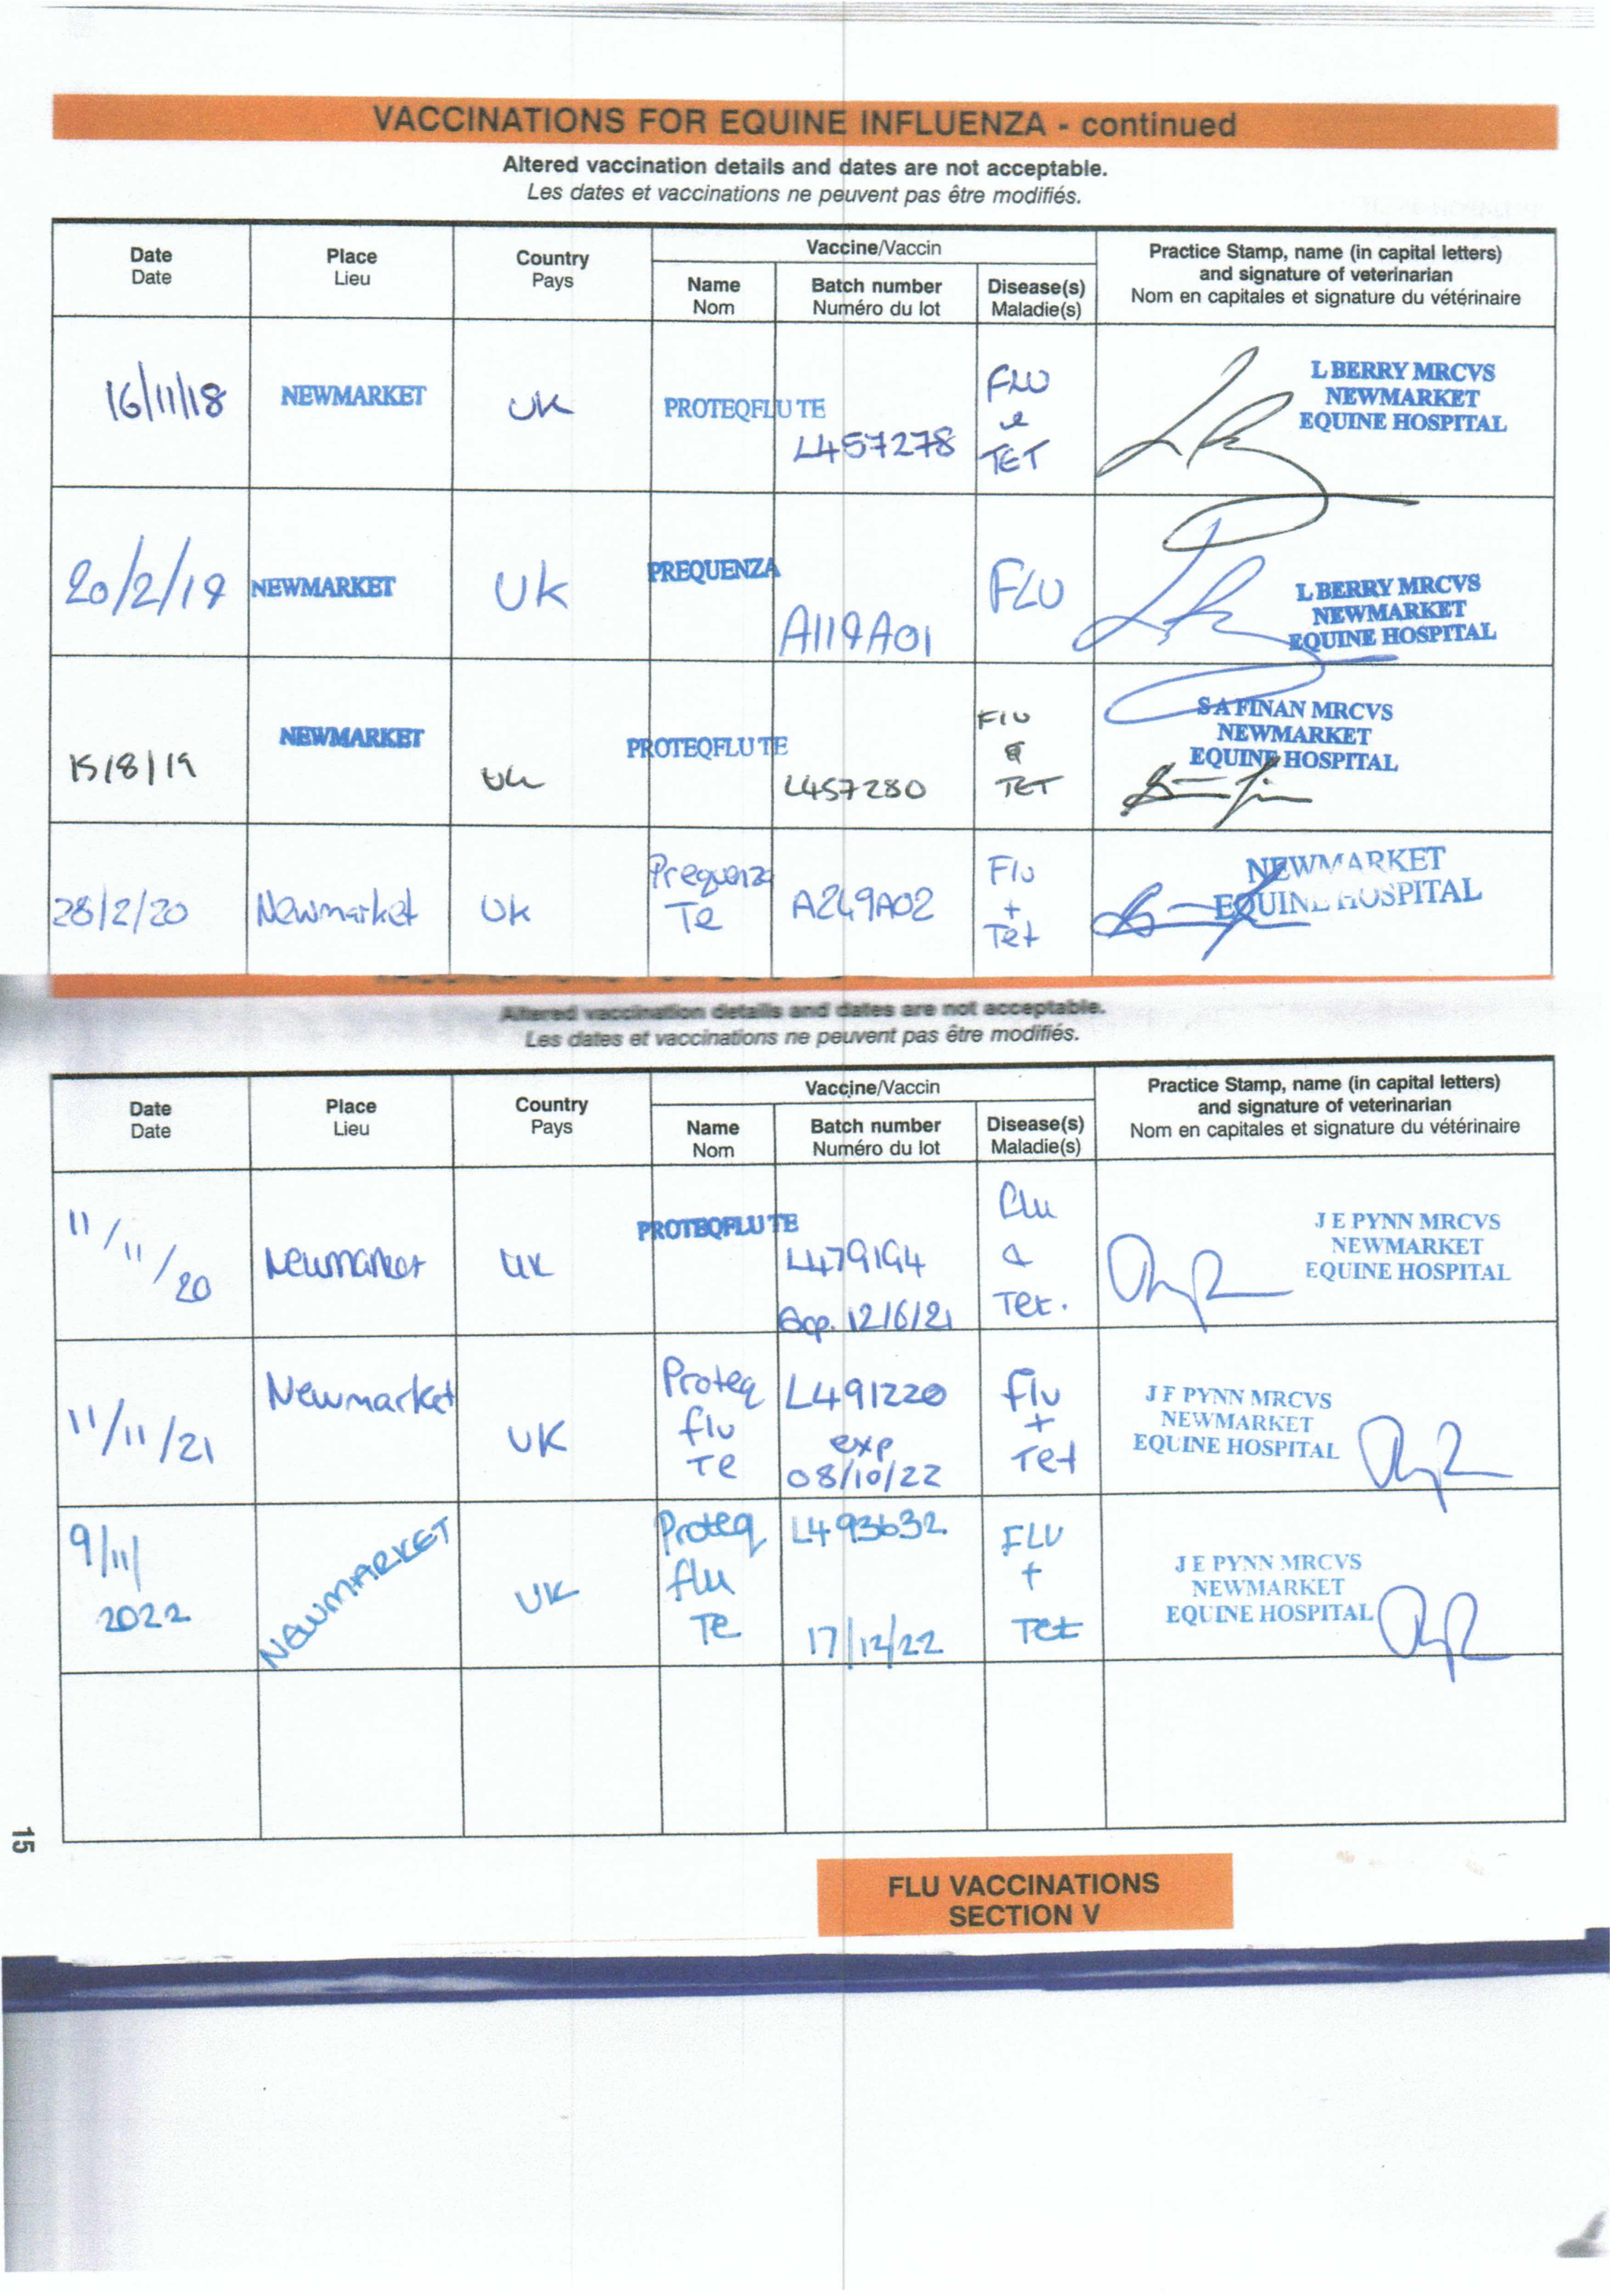 VACCINATIONS FOR EQUINE INFLUENZA - continued
Altered vaccination details and dates are not acceptable.
Les dates et vaccinations ne peuvent pas être modifiés.
Date
Date
Place
Lieu
Country
Pays
Vaccine/Vaccin
Name
Nom
Batch number
Numéro du lot
Disease(s)
Maladie(s)
Practice Stamp, name (in capital letters)
and signature of veterinarian
Nom en capitales et signature du vétérinaire
16/11/18
NEWMARKET
UK
PROTEQFLU TE
L457278
FLU
TET
L BERRY MRCVS
NEWMARKET
EQUINE HOSPITAL
20/2/19
NEWMARKET
UK
PREQUENZA
A119A01
FLU
L BERRY MRCVS
NEWMARKET
EQUINE HOSPITAL
15/8/19
NEWMARKET
UK
PROTEQFLU TE
L457280
Flu
TET
S A FINAN MRCVS
NEWMARKET
EQUINE HOSPITAL
28/2/20
Newmarket
UK
Prequenza
Te
A249A02
Flu
+
Tet
NEWMARKET
EQUINE HOSPITAL
Altered vaccination details and dates are not acceptable.
Les dates et vaccinations ne peuvent pas être modifiés.
Date
Date
Place
Lieu
Country
Pays
Vaccine/Vaccin
Name
Nom
Batch number
Numéro du lot
Disease(s)
Maladie(s)
Practice Stamp, name (in capital letters)
and signature of veterinarian
Nom en capitales et signature du vétérinaire
11/11/20
Newmarket
UK
PROTEQFLU TE
L479194
Exp. 12/6/21
Flu
&
Tet.
J E PYNN MRCVS
NEWMARKET
EQUINE HOSPITAL
11/11/21
Newmarket
UK
Proteq
flu
Te
L491220
exp
08/10/22
flu
+
Tet
J E PYNN MRCVS
NEWMARKET
EQUINE HOSPITAL
9/11/
2022
NEWMARKET
UK
Proteq
flu
Te
L493632
17/12/22
FLU
+
Tet
J E PYNN MRCVS
NEWMARKET
EQUINE HOSPITAL
15
FLU VACCINATIONS
SECTION V